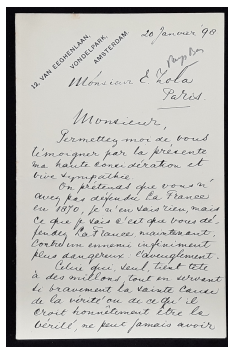 12, VAN EEGHENLAAN,
VONDELPARK,
AMSTERDAM.
20 Janvier '98
Pays Bas
Monsieur E Zola
Paris.
Monsieur,
Permettez moi de vous
témoigner par la présente
ma haute considération et
vive sympathie.
On prétends que vous n'
avez pas défendu La France
en 1870, je n'en sais rien, mais
ce que je sais c'est que vous dé-
fendez La France maintenant,
contre un ennemi infiniment
plus dangereux l'aveuglement.
Celui qui, seul, tient tête
à des millions, tout en servant
si bravement la sainte cause
de la vérité ou de ce qu'il
croit honnêtement être la
vérité, ne peut jamais avoir